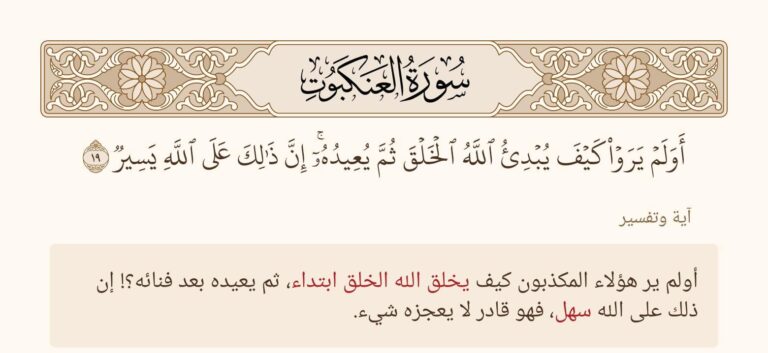 سُورَةُ العَنكَبُوتِ
أَوَلَمۡ يَرَوۡاْ كَيۡفَ يُبۡدِئُ ٱللَّهُ ٱلۡخَلۡقَ ثُمَّ يُعِيدُهُۥٓۚ إِنَّ ذَٰلِكَ عَلَى ٱللَّهِ يَسِيرٞ ١٩
آية وتفسير
أولم ير هؤلاء المكذبون كيف يخلق الله الخلق ابتداء، ثم يعيده بعد فنائه؟! إن
ذلك على الله سهل، فهو قادر لا يعجزه شيء.